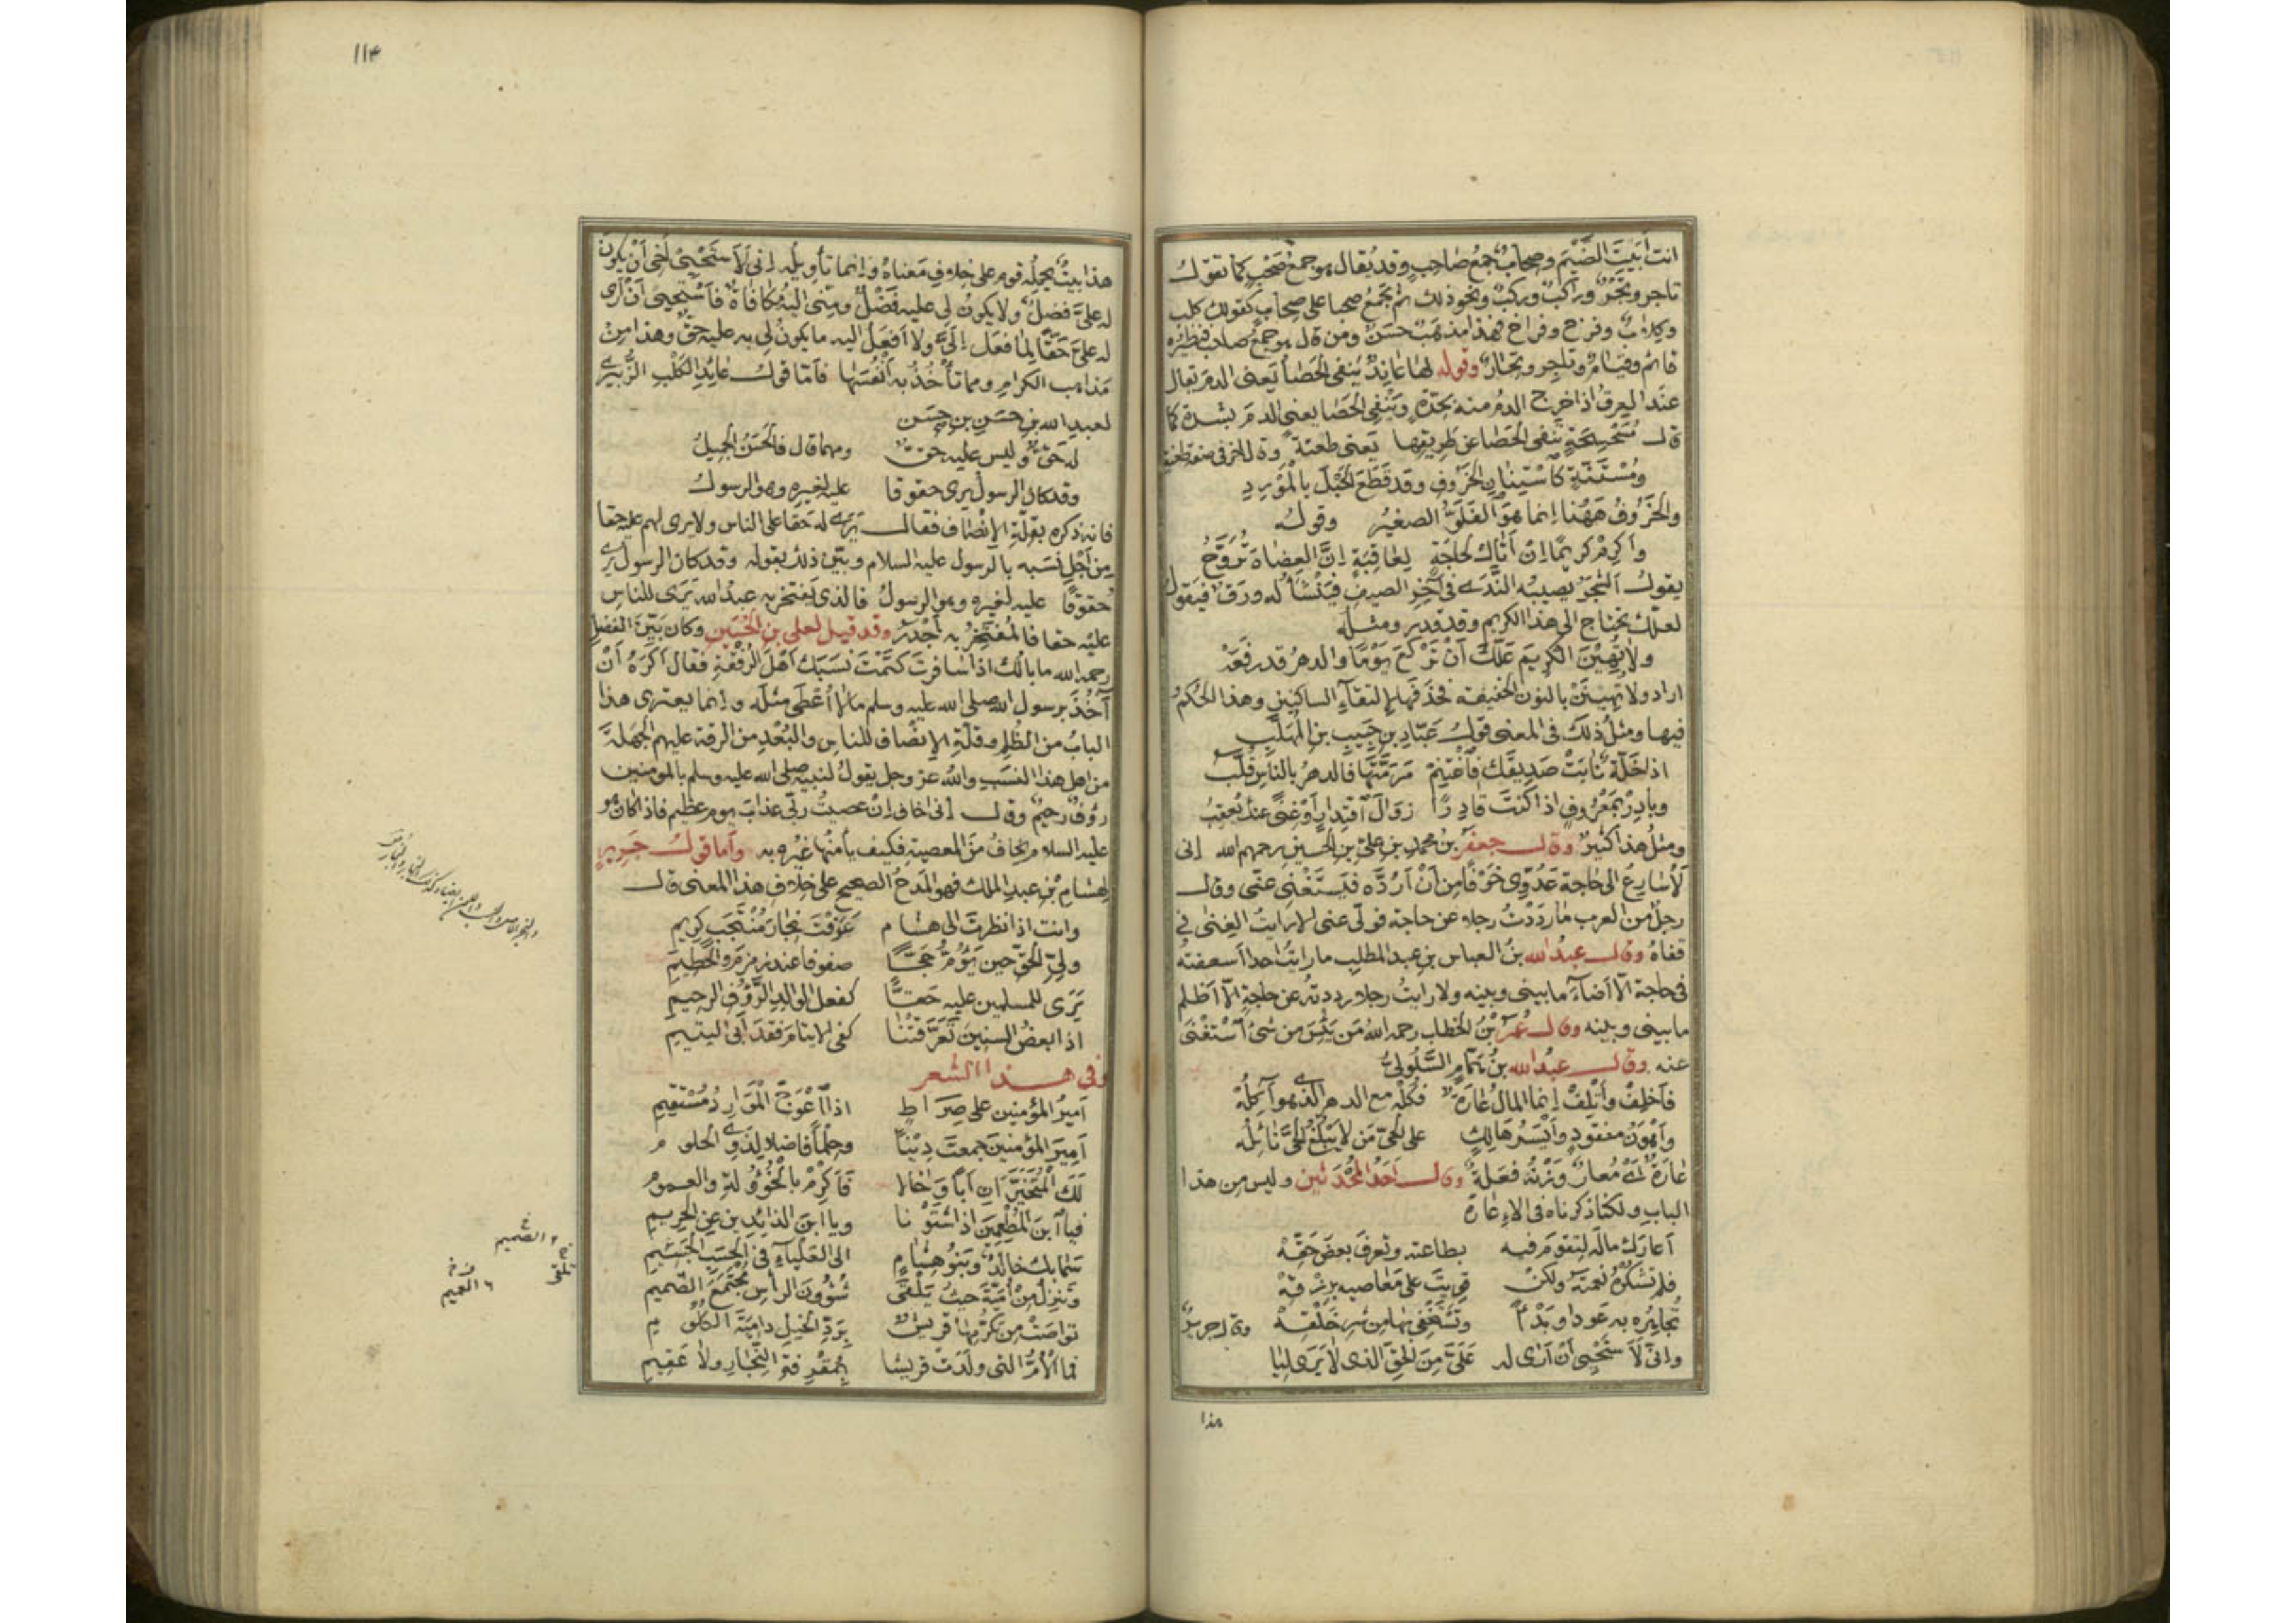 انت أبيت الضيم وصحاب جمع صاحب وقد يقال هو جمع صحب كما تقول
تاجر وتجر وراكب وركب ونحو ذلك ثم تجمع صحبا على صحاب كقولك كلب
وكلاب وفرخ وفراخ فهذا مذهب حسن ومن قال هو جمع صاحب فنظيره
قائم وقيام وتاجر وتجار وقوله لها عاند ينفى الحصا يعنى الدم يقال
عند العرق اذا خرج الدم منه بحدة وينفى الحصا يعنى الدم بشدة كما
قال مسحسحة تنفى الحصا عن طريقها يعنى طعنة وقال اخر فى صفة طعنة
ومستنة كاستنان الخروف وقد قطع الحبل بالمرود
والخروف ههنا انما هو الفلو الصغير وقوله
واكرم كريما ان اتاك لحاجة لعاقبة ان العضاة تروح
يقول الشجر يصيبه الندى فى آخر الصيف فينشأ له ورق فيقول
لعلك تحتاج الى هذا الكريم وقد قدر ومثله
ولا تهين الكريم علك أن تركع يوما والدهر قد رفعه
اراد ولا تهينن بالنون الخفيفة فحذفها لالتقاء الساكنين وهذا الحكم
فيها ومثل ذلك فى المعنى قول عباد بن حبيب بن المهلب
اذا خلة نابت صديقك فاغتنم مرمتها فالدهر بالناس قلب
وبادر بمعروف اذا كنت قادرا زوال اقتدار أو غنى عنك يعقب
ومثل هذا كثير وقال جعفر بن محمد بن على بن الحسين رحمهم الله إنى
لأسارع الى حاجة عدوى خوفا من أن أرده فيستغنى عنى وقال
رجل من العرب ما رددت رجلا عن حاجة فولى عنى الا رايت الغنى فى
قفاه وقال عبد الله بن العباس بن عبد المطلب ما رايت احدا اسعفته
فى حاجة الا أضاء ما بينى وبينه ولا رايت رجلا رددته عن حاجة الا اظلم
ما بينى وبينه وقال عمر بن الخطاب رحمه الله من يئس من شئ استغنى
عنه وقال عبد الله بن همام السلولى
فاخلف وأتلف إنما المال عارة فكله مع الدهر الذى هو آكله
وأهون مفقود وأيسر هالك على الحى من لا يبلغ الحى نائله
عارة أى معار وزنه فعلة وقال أحد المحدثين وليس من هذا
الباب ولكنا ذكرناه فى الاعارة
أعارك ماله لتقوم فيه بطاعته وتعرف بعض حقه
فلم تشكره نعمته ولكن قويت على معاصيه برزقه
تجاهره به عودا وبدءا وتستخفى بها من شر خلقه وقال جرير
وانى لأستحيى أن أرى له على من الحق الذى لا يرى ليا
هذا
١١٤
هذا بيت يحمله قوم على خلاف معناه وانما تأويله إنى لأستحيى أخى أن يكون
له على فضل ولا يكون لى عليه فضل ومنى اليه مكافاة فأستحيى أن أرى
له على حقا لما فعل إلى ولا افعل اليه ما يكون لى به عليه حق وهذا من
مذاهب الكرام ومما تأخذ به أنفسها فأما قول عائد الكلب الزبيرى
لعبد الله بن حسن بن حسن
له حق وليس عليه حق ومهما قال فالحسن الجميل
وقد كان الرسول يرى حقوقا عليه لغيره وهو الرسول
فانه ذكره بقلة الإنصاف فقال يرى له حقا على الناس ولا يرى لهم عليه حقا
من أجل نسبه بالرسول عليه السلام وبين ذلك بقوله وقد كان الرسول يرى
حقوقا عليه لغيره وهو الرسول فالذى يفتخر به عبد الله يرى للناس
عليه حقا فالمفتخر به أجدر وقد قيل لعلى بن الحسين وكان بين الفضل
رحمه الله ما بالك اذا سافرت كتمت نسبك أهل الرفقة فقال اكره أن
آخذ برسول الله صلى الله عليه وسلم مالا أعطى مثله وانما يعترى هذا
الباب من الظلم وقلة الإنصاف للناس والبعد من الرقة عليهم الجهلة
من اهل هذا النسب والله عز وجل يقول لنبيه صلى الله عليه وسلم بالمؤمنين
رؤف رحيم وقال إنى اخاف إن عصيت ربى عذاب يوم عظيم فاذا كان هو
عليه السلام يخاف من المعصية فكيف يأمنها غيره به وأما قول جرير
لهشام بن عبد الملك فهو المدح الصحيح على خلاف هذا المعنى قال
وانت اذا نظرت الى هشام عرفت نجار منتجب كريم
ولى الحق حين يؤم حجا صفوفا عند زمزم والحطيم
يرى للمسلمين عليه حقا كفعل الوالد الرؤف الرحيم
اذا بعض السنين تعرقتنا كفى الايتام فقد أبى اليتيم
وفى هذا الشعر
أمير المؤمنين على صراط اذا اعوج الموارد مستقيم
أمير المؤمنين جمعت دينا وحلما فاضلا لذوى الحلوم
لك المتخيران أبا وخالا فأكرم بالخؤولة والعموم
فيا ابن المطعمين اذا شتونا ويا ابن الذائدين عن الحريم
سما بك خالد وبنو هشام الى العلياء فى الحسب الجسيم
وتنزل من أمية حيث يلقى شؤون الرأس مجتمع الصميم
تواصت من تكرمها قريش برد الخيل دامية الكلوم
فما الأم التى ولدت قريشا بمقرفة النجار ولا عقيم
الصميم
تلقى
العميم